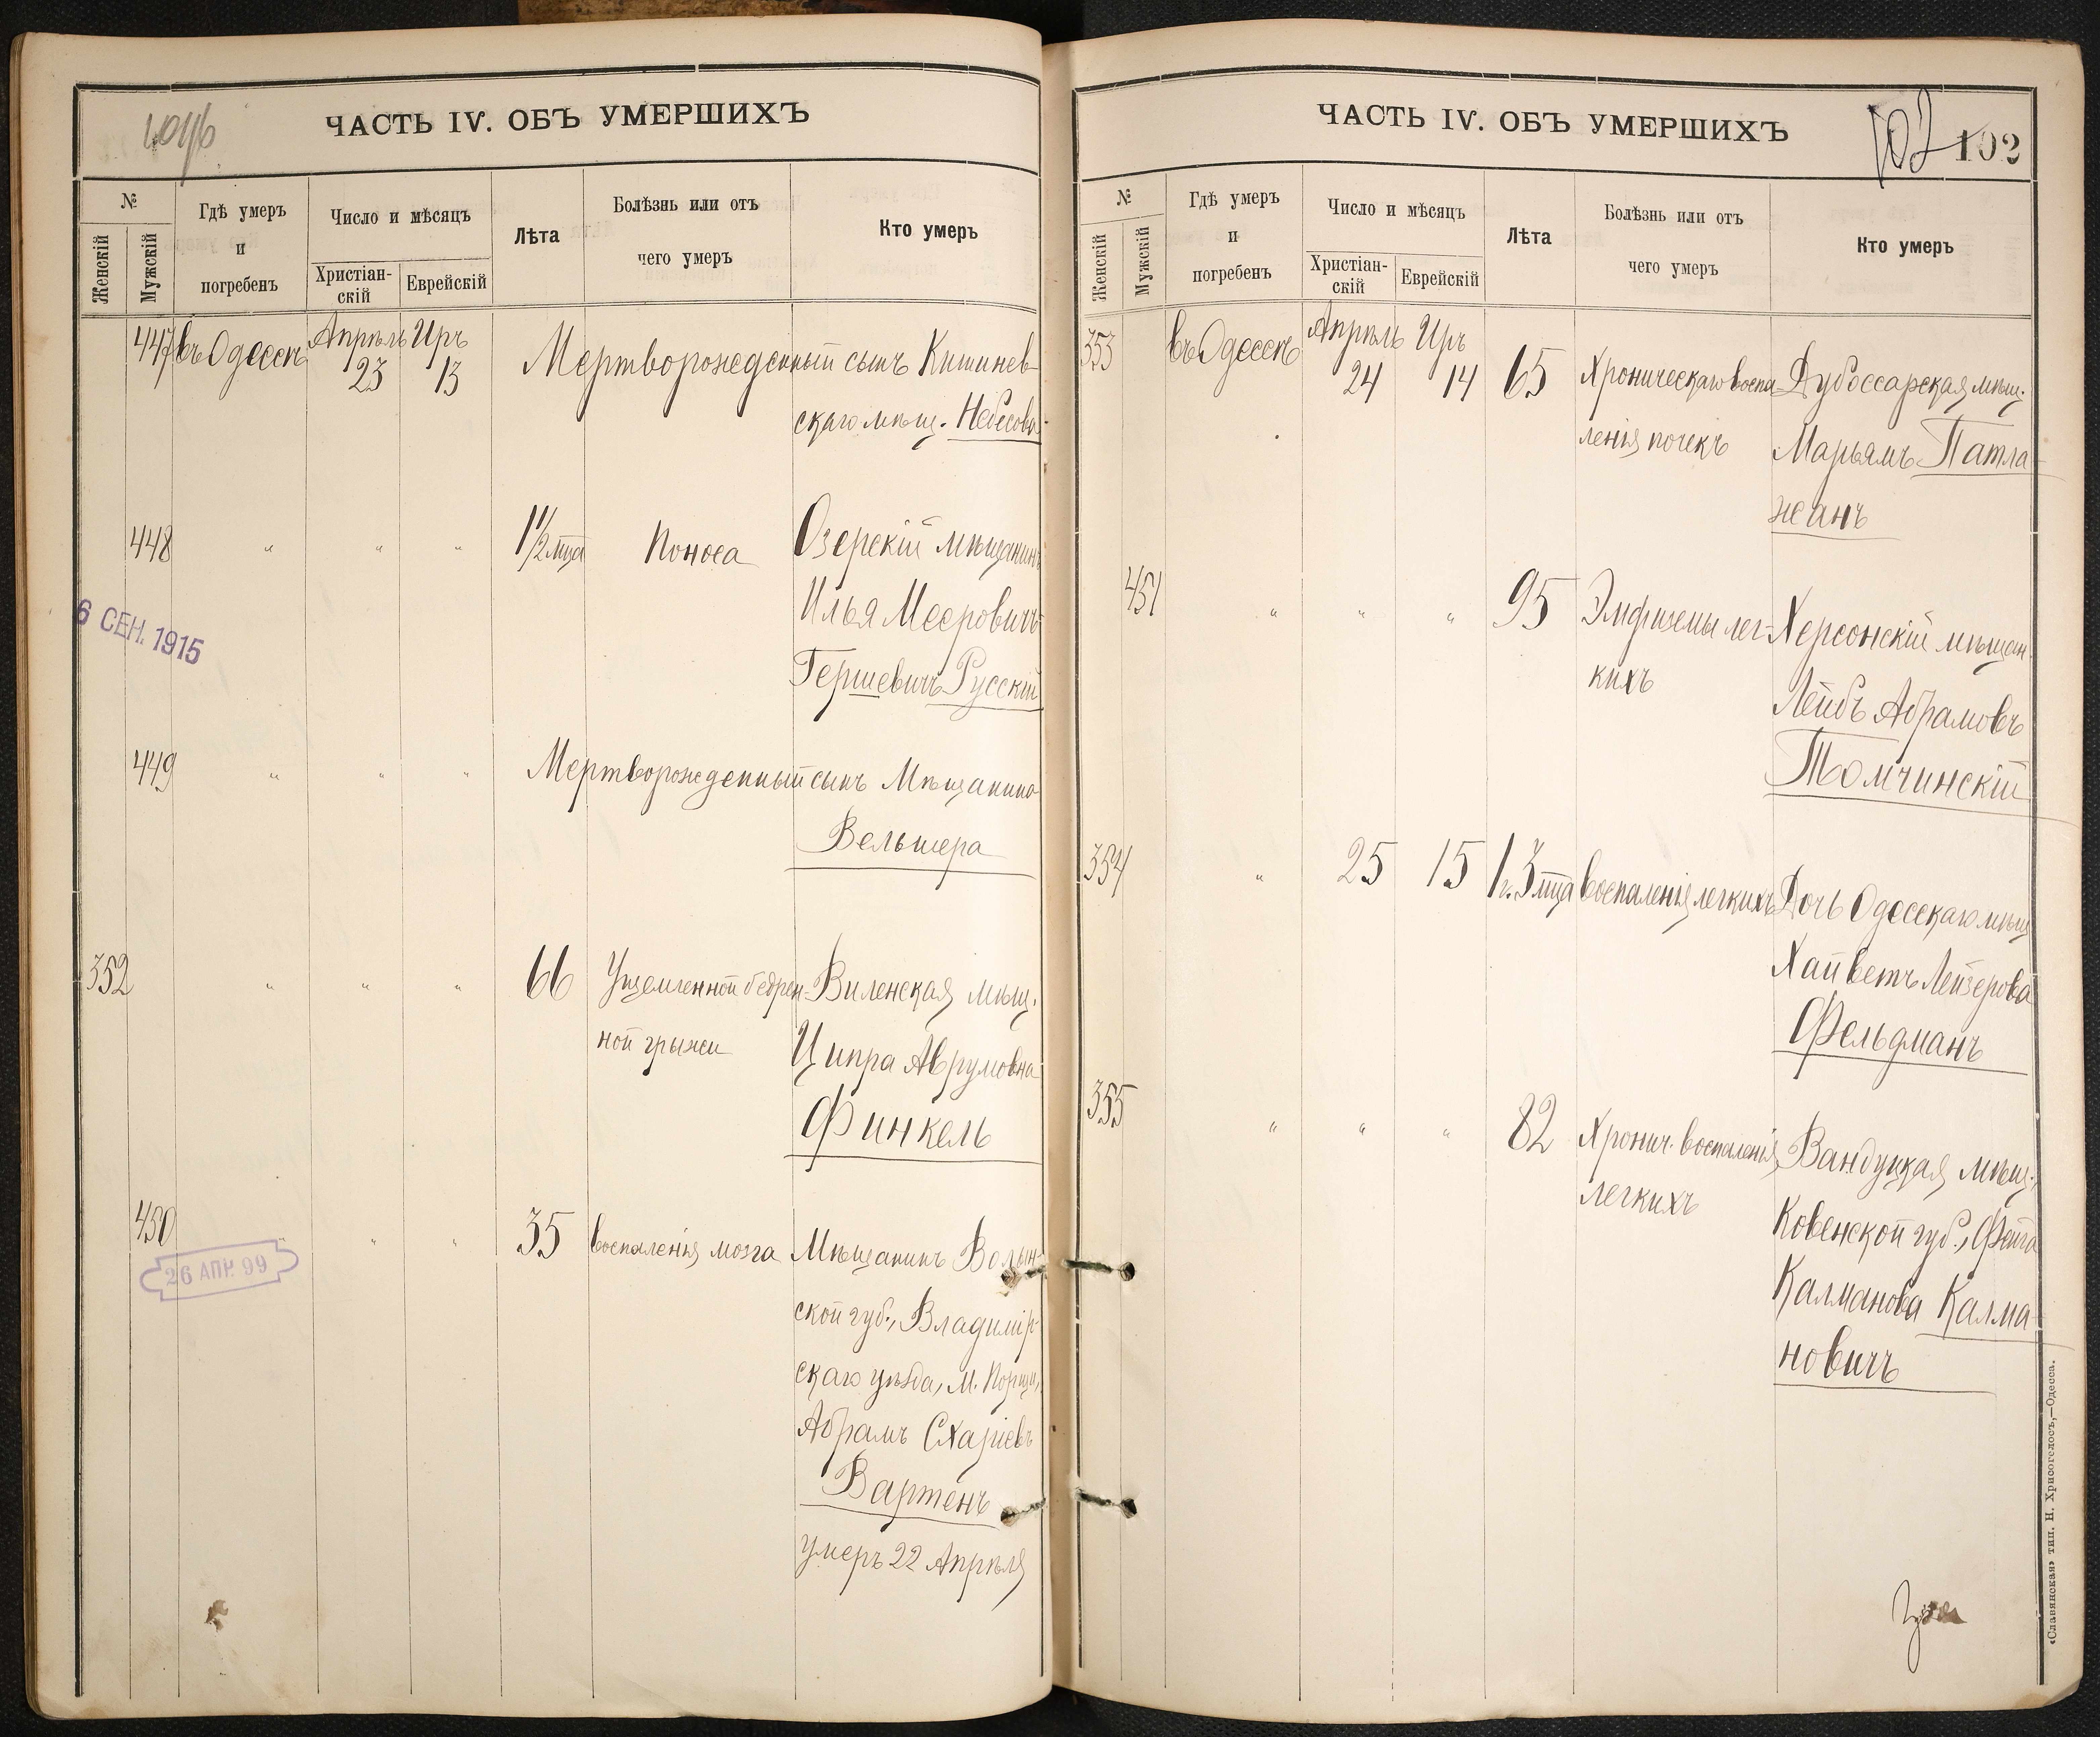 ЧАСТЬ IV. ОБЪ УМЕРШИХЪ
№
Женскій
Мужскій
Гдѣ умеръ
и
погребенъ
Число и мѣсяцъ
Христіан-
скій
Еврейскій
Лѣта
Болѣзнь или отъ
чего умеръ
Кто умеръ
447 въ Одессѣ Апрѣль Иръ
23 13 Мертворожденный сынъ Кишинев-
скаго мѣщ. Небесова
448 " " " 1 1/2 мца Поноса Озерскій мѣщанинъ
Илья Мееровичъ
Гершевичъ Русскій
6 СЕН. 1915
449 " " " Мертворожденный сынъ Мѣщанина
Вельшера
352 " " " 66 Ущемленной бедрен-
ной грыжи
Виленская мѣщ.
Ципра Аврумовна
Финкель
450 " " " 35 воспаленія мозга Мѣщанинъ Волын-
ской губ., Владимір-
скаго уѣзда, м.
Абрамъ Схаріевъ
Вартенъ
умеръ 22 Апрѣля
26 АПР. 99
ЧАСТЬ IV. ОБЪ УМЕРШИХЪ
102 102
№
Женскій
Мужскій
Гдѣ умеръ
и
погребенъ
Число и мѣсяцъ
Христіан-
скій
Еврейскій
Лѣта
Болѣзнь или отъ
чего умеръ
Кто умеръ
353 въ Одессѣ Апрѣль Иръ
24 14 65 Хроническаго воспа-
ленія почекъ
Дубоссарская мѣщ.
Марьямъ Патла-
жанъ
451 " " " 95 Эмфиземы лег-
кихъ
Херсонскій мѣщан.
Лейбъ Абрамовъ
Томчинскій
354 " 25 15 1 г. 3 мца воспаленія легкихъ Дочь Одесскаго мѣщ
Хайветъ Лейзерова
Фельдманъ
355 " " " 82 Хронич. воспаленія
легкихъ
Вандуцкая мѣщ.,
Ковенской губ., Фейга
Калманова Калма-
новичъ
«Славянская» тип. Н. Хрисогелосъ,—Одесса.